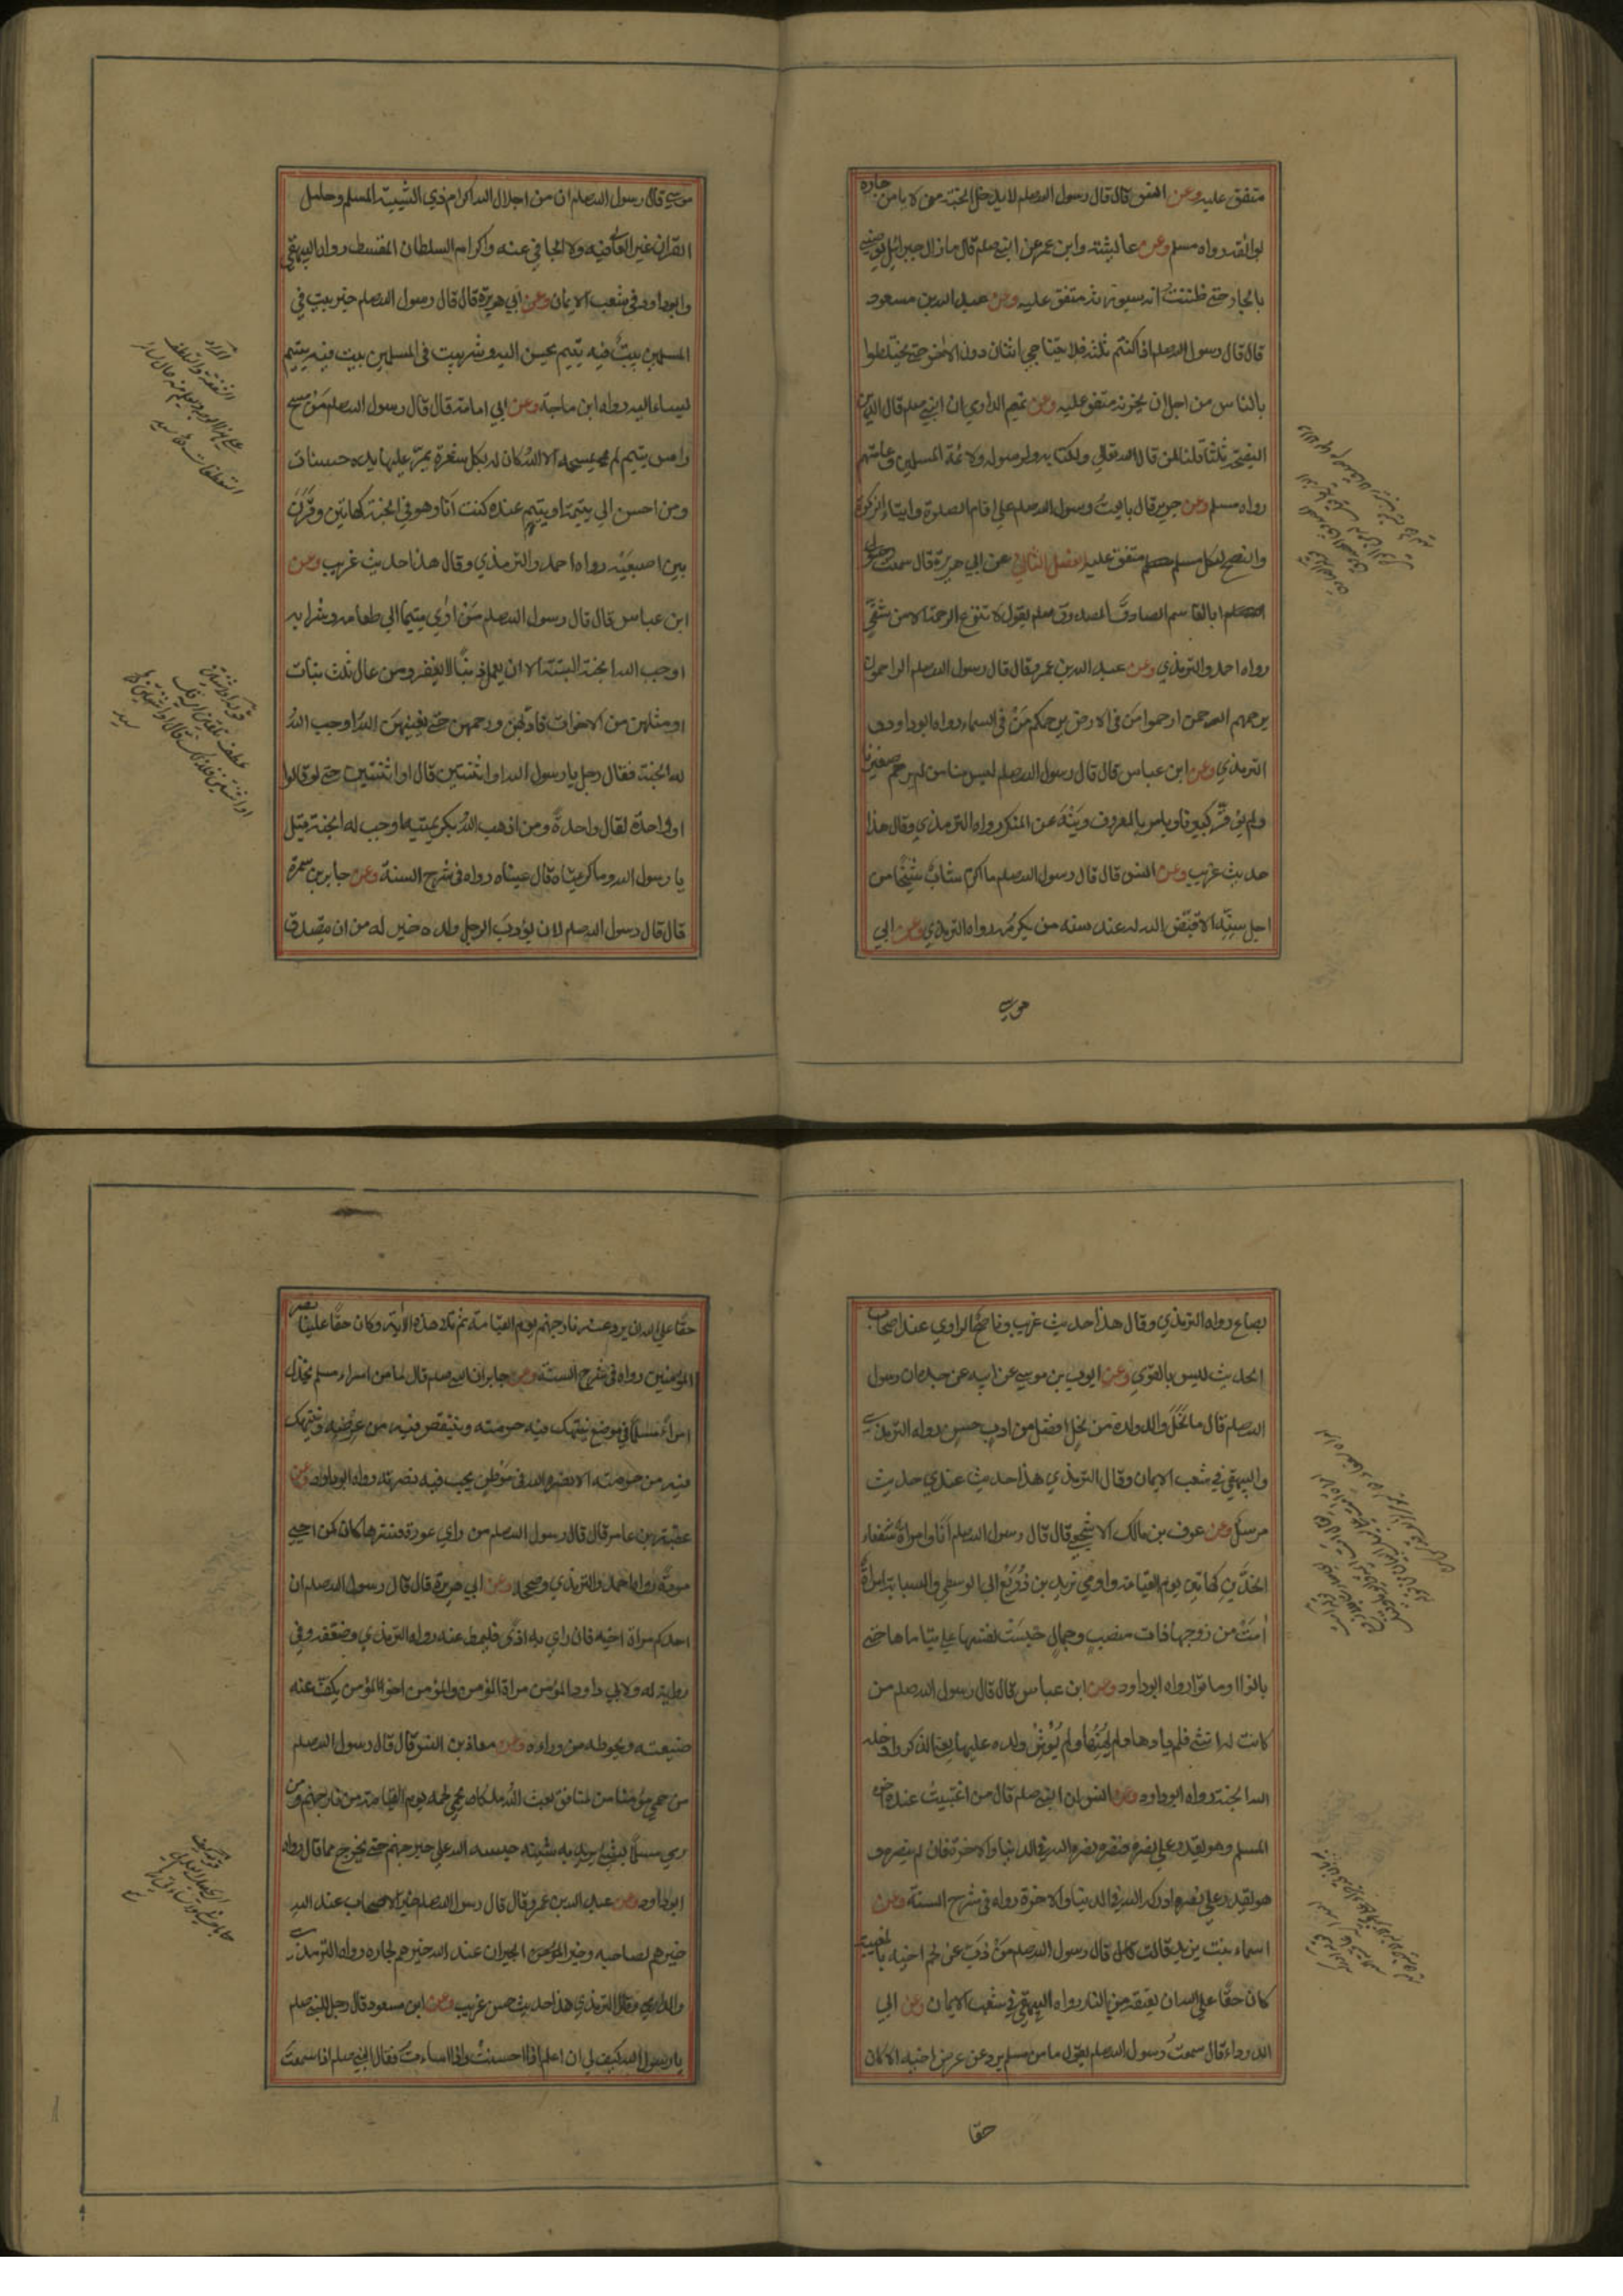 متفق عليه وعن انس قال قال رسول الله صلم لا يدخل الجنة من لا يامن جاره
بوائقه رواه مسلم وعن عايشة وابن عمر عن النبي صلم قال ما زال جبرائيل يوصيني
بالجار حتى ظننت انه سيورثه متفق عليه وعن عبد الله بن مسعود
قال قال رسول الله صلم اذا كنتم ثلثة فلا يتناجى اثنان دون الاخر حتى يختلطوا
بالناس من اجل ان يحزنه متفق عليه وعن تميم الداري ان النبي صلم قال الدين
النصيحة ثلثا قلنا لمن قال لله تعالى ولكتابه ولرسوله ولائمة المسلمين وعامتهم
رواه مسلم وعن جرير قال بايعت رسول الله صلم على اقام الصلوة وايتاء الزكوة
والنصح لكل مسلم متفق عليه الفصل الثاني عن ابي هريرة قال سمعت
ابا القاسم الصادق المصدوق صلم يقول لا تنزع الرحمة الا من شقي
رواه احمد والترمذي وعن عبد الله بن عمرو قال قال رسول الله صلم الراحمون
يرحمهم الرحمن ارحموا من في الارض يرحمكم من في السماء رواه ابو داود و
الترمذي وعن ابن عباس قال قال رسول الله صلم ليس منا من لم يرحم صغيرنا
ولم يوقر كبيرنا ويامر بالمعروف وينه عن المنكر رواه الترمذي وقال هذا
حديث غريب وعن انس قال قال رسول الله صلم ما اكرم شاب شيخا من
اجل سنه الا قيض الله له عند سنه من يكرمه رواه الترمذي وعن ابي
موسى
موسى قال رسول الله صلم ان من اجلال الله اكرام ذي الشيبة المسلم وحامل
القران غير الغالي فيه ولا الجافي عنه واكرام السلطان المقسط رواه البيهقي
وابو داود في شعب الايمان وعن ابي هريرة قال قال رسول الله صلم خير بيت في
المسلمين بيت فيه يتيم يحسن اليه وشر بيت في المسلمين بيت فيه يتيم
يساء اليه رواه ابن ماجة وعن ابي امامة قال قال رسول الله صلم من مسح
راس يتيم لم يمسحه الا لله كان له بكل شعرة يمر عليها يده حسنات
ومن احسن الى يتيمة او يتيم عنده كنت انا وهو في الجنة كهاتين وقرن
بين اصبعيه رواه احمد والترمذي وقال هذا حديث غريب وعن
ابن عباس قال قال رسول الله صلم من اوى يتيما الى طعامه وشرابه
اوجب الله الجنة البتة الا ان يعمل ذنبا لا يغفر ومن عال ثلث بنات
او مثلهن من الاخوات فادبهن ورحمهن حتى يغنيهن الله اوجب الله
له الجنة فقال رجل يا رسول الله او اثنتين قال او اثنتين حتى لو قالوا
او واحدة لقال واحدة ومن اذهب الله بكريمتيه اوجب له الجنة قيل
يا رسول الله وما كريمتاه قال عيناه رواه في شرح السنة وعن جابر بن سمرة
قال قال رسول الله صلم لان يؤدب الرجل ولده خير له من ان يتصدق
بصاع رواه الترمذي وقال هذا حديث غريب وناصح الراوي عند اصحاب
الحديث ليس بالقوي وعن ايوب بن موسى عن ابيه عن جده ان رسول
الله صلم قال ما نحل والد ولده من نحل افضل من ادب حسن رواه الترمذي
والبيهقي في شعب الايمان وقال الترمذي هذا حديث عندي حديث
مرسل وعن عوف بن مالك الاشجعي قال قال رسول الله صلم انا وامراة سفعاء
الخدين كهاتين يوم القيامة واومى يزيد بن ذريع الى الوسطى والسبابة امراة
امت من زوجها ذات منصب وجمال حبست نفسها على يتاماها حتى
بانوا او ماتوا رواه ابو داود وعن ابن عباس قال قال رسول الله صلم من
كانت له انثى فلم يادها ولم يهنها ولم يؤثر ولده عليها يعني الذكور ادخله
الله الجنة رواه ابو داود وعن انس ان النبي صلم قال من اغتيب عنده اخوه
المسلم وهو يقدر على نصره فنصره نصره الله في الدنيا والاخرة فان لم ينصره و
هو يقدر على نصره ادركه الله في الدنيا والاخرة رواه في شرح السنة وعن
اسماء بنت يزيد قالت قال رسول الله صلم من ذب عن لحم اخيه بالمغيبة
كان حقا على الله ان يعتقه من النار رواه البيهقي في شعب الايمان وعن ابي
الدرداء قال سمعت رسول الله صلم يقول ما من مسلم يرد عن عرض اخيه الا كان
حقا
حقا على الله ان يرد عنه نار جهنم يوم القيامة ثم تلا هذه الاية وكان حقا علينا نصر
المؤمنين رواه في شرح السنة وعن جابر ان النبي صلم قال ما من امرء مسلم يخذل
امراء مسلما في موضع ينتهك فيه حرمته وينتقص فيه من عرضه وينتهك
فيه من حرمته الا نصره الله في موطن يحب فيه نصرته رواه ابو داود وعن
عقبة بن عامر قال قال رسول الله صلم من راى عورة فسترها كان كمن احيى
مودة رواه احمد والترمذي وصححه وعن ابي هريرة قال قال رسول الله صلم ان
احدكم مراة اخيه فان راى به اذى فليمط عنه رواه الترمذي وضعفه وفي
رواية له ولابي داود المؤمن مراة المؤمن والمؤمن اخو المؤمن يكف عنه
ضيعته ويحوطه من ورائه وعن معاذ بن انس قال قال رسول الله صلم
من حمى مؤمنا من منافق بعث الله ملكا يحمي لحمه يوم القيامة من نار جهنم ومن
رمى مسلما بشيء يريد به شينه حبسه الله على جسر جهنم حتى يخرج مما قال رواه
ابو داود وعن عبد الله بن عمرو قال قال رسول الله صلم خير الاصحاب عند الله
خيرهم لصاحبه وخير الجيران عند الله خيرهم لجاره رواه الترمذي
والدارمي وقال الترمذي هذا حديث حسن غريب وعن ابن مسعود قال رجل للنبي صلم
يا رسول الله كيف لي ان اعلم اذا احسنت واذا اساءت فقال النبي صلم اذا سمعت